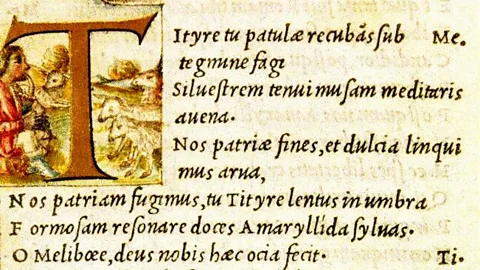 TItyre tu patulæ recubãs sub Me.
tegmine fagi
Siluestrem tenui musam meditaris
auena.
Nos patriæ fines, et dulcia linqui
mus arua,
Nos patriam fugimus, tu Tityre lentus in umbra
Formosam resonare doces Amaryllida syluas.
O Melibœe, deus nobis hæc ocia fecit. Ti.